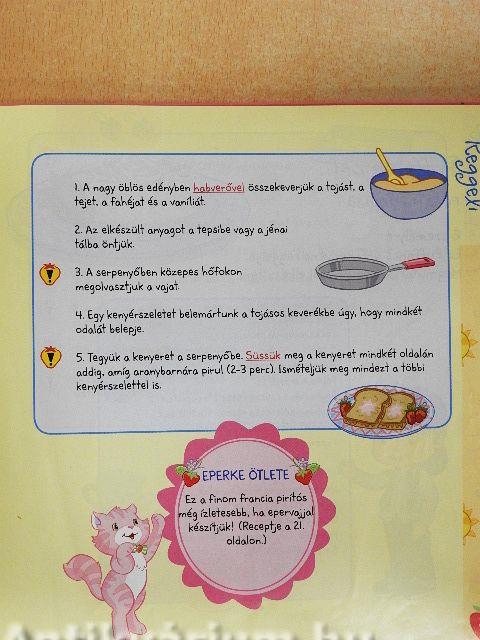 Reggeli
1. A nagy öblös edényben habverővel összekeverjük a tojást, a
tejet, a fahéjat és a vaníliát.
2. Az elkészült anyagot a tepsibe vagy a jénai
tálba öntjük.
3. A serpenyőben közepes hőfokon
megolvasztjuk a vajat.
4. Egy kenyérszeletet belemártunk a tojásos keverékbe úgy, hogy mindkét
odalát belepje.
5. Tegyük a kenyeret a serpenyőbe. Süssük meg a kenyeret mindkét oldalán
addig, amíg aranybarnára pirul (2-3 perc). Ismételjük meg mindezt a többi
kenyérszelettel is.
EPERKE ÖTLETE
Ez a finom francia pirítós
még ízletesebb, ha epervajjal
készítjük! (Receptje a 21.
oldalon.)
Antikvarium.hu